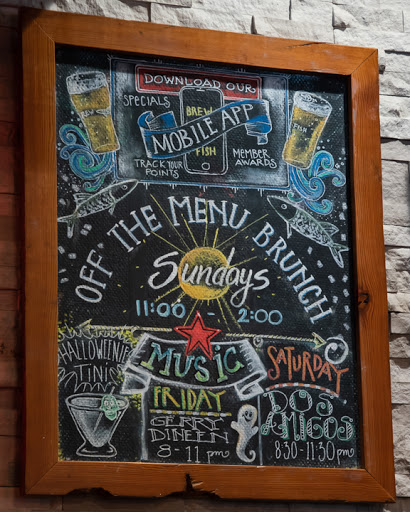 DOWNLOAD OUR
SPECIALS
BREW
MOBILE APP
FISH
TRACK YOUR
POINTS
MEMBER
AWARDS
OFF THE MENU BRUNCH
Sundays
11:00 - 2:00
HALLOWEENIE
TINIS
MUSIC
FRIDAY
GERRY
DINEEN
8 - 11 pm
SATURDAY
DOS
AMIGOS
8:30 - 11:30 pm